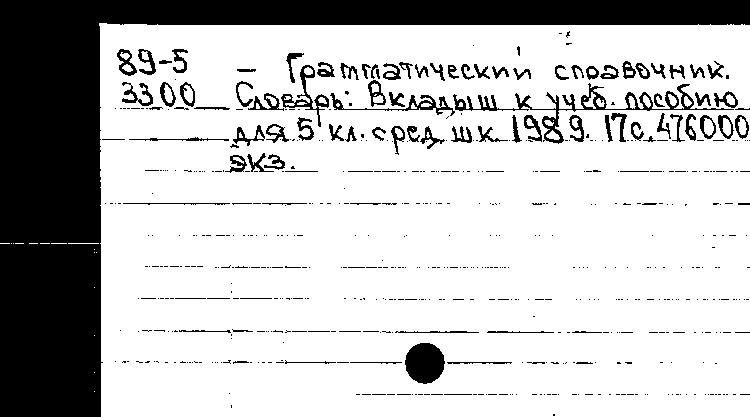 89-5 — Грамматический справочник.
3300 Словарь: Вкладыш к учеб. пособию
для 5 кл. сред. шк. 1989. 17с. 476000
экз.